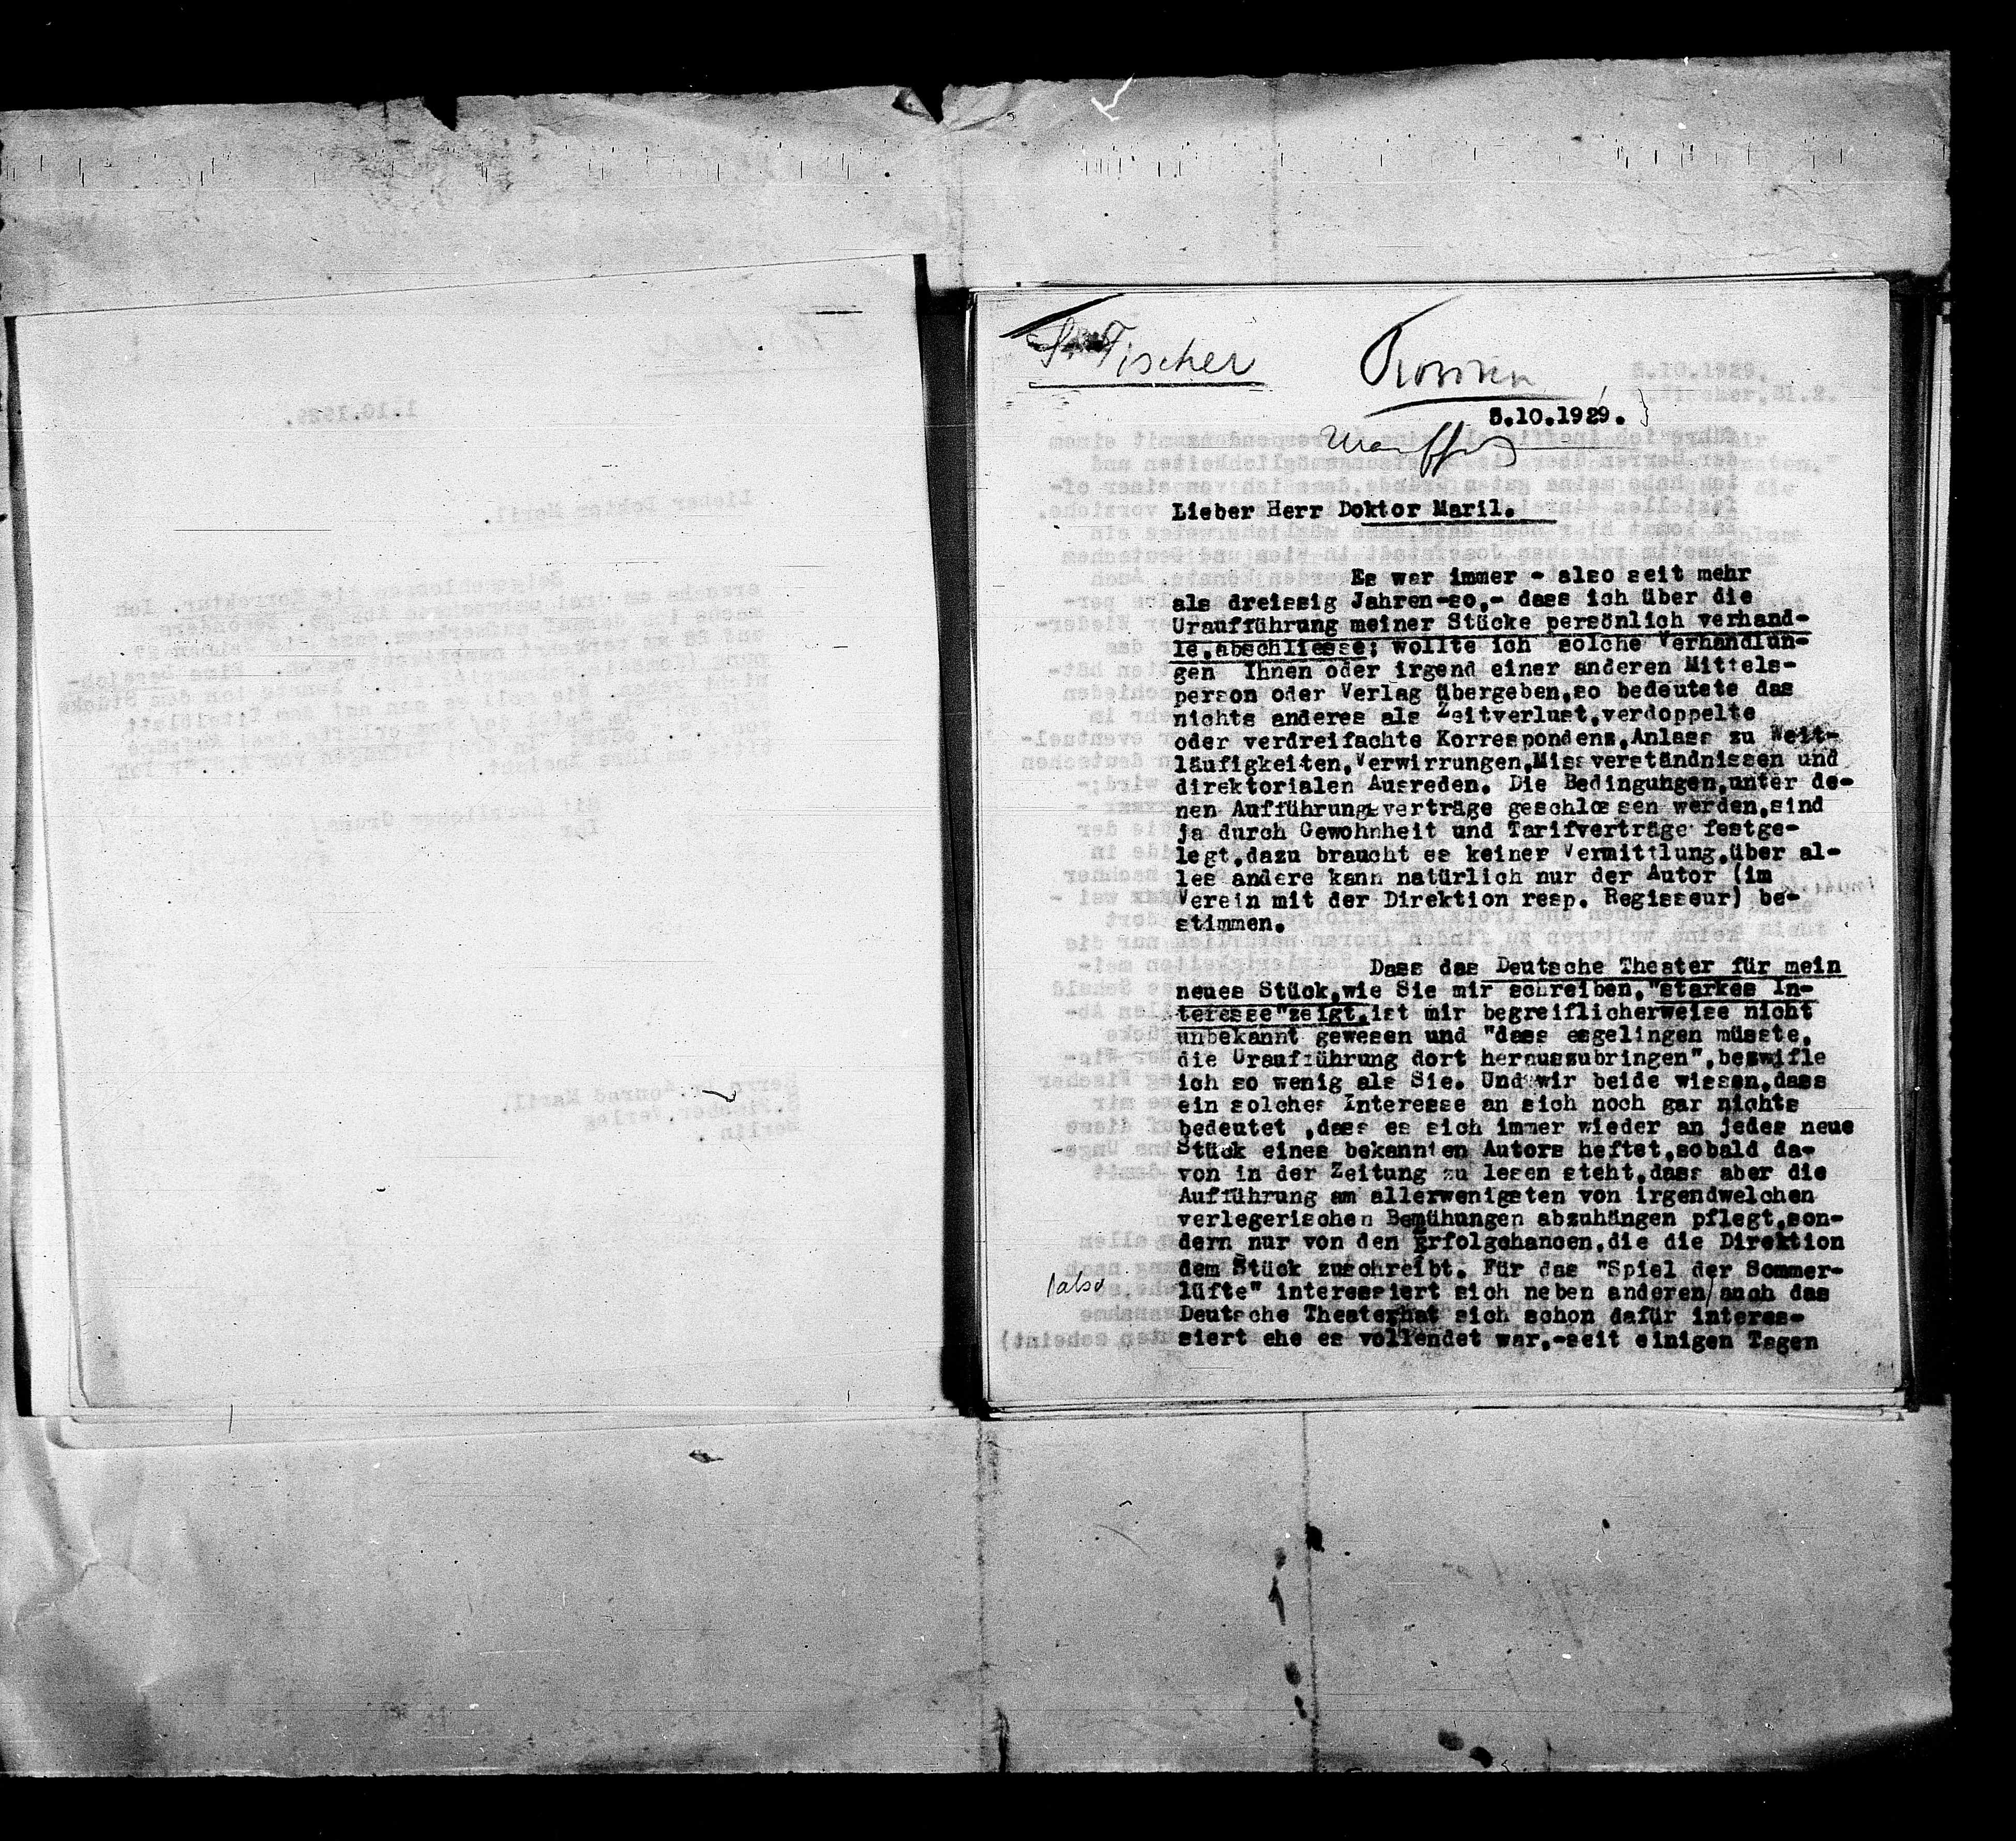 S. Fischer
5.10.1929.
Lieber Herr Doktor Maril.
Es war immer - also seit mehr
als dreissig Jahren-so,- dass ich über die
Uraufführung meiner Stücke persönlich verhand-
le,abschliesse; wollte ich solche Verhandlun-
gen Ihnen oder irgend einer anderen Mittels-
person oder Verlag übergeben,so bedeutete das
nichts anderes als Zeitverlust,verdoppelte
oder verdreifachte Korrespondenz,Anlass zu Weit-
läufigkeiten,Verwirrungen,Missverständnissen und
direktorialen Ausreden. Die Bedingungen,unter de-
nen Aufführungsverträge geschlossen werden,sind
ja durch Gewohnheit und Tarifverträge festge-
legt,dazu braucht es keiner Vermittlung,über al-
les andere kann natürlich nur der Autor (im
Verein mit der Direktion resp. Regisseur) be-
stimmen.
Dass das Deutsche Theater für mein
neues Stück,wie Sie mir schreiben,"starkes In-
teresse"zeigt,ist mir begreiflicherweise nicht
unbekannt gewesen und "dass esgelingen müsste,
die Uraufführung dort herauszubringen",bezwifle
ich so wenig als Sie. Und wir beide wissen,dass
ein solches Interesse an sich noch gar nichts
bedeutet ,dass es sich immer wieder an jedes neue
Stück eines bekannten Autors heftet,sobald da-
von in der Zeitung zu lesen steht,dass aber die
Aufführung am allerwenigsten von irgendwelchen
verlegerischen Bemühungen abzuhängen pflegt,son-
dern nur von den Erfolgchancen,die die Direktion
dem Stück zuschreibt. Für das "Spiel der Sommer-
/also
lüfte" interessiert sich neben anderen/auch das
Deutsche Theater,hat sich schon dafür interes-
siert ehe es vollendet war,-seit einigen Tagen